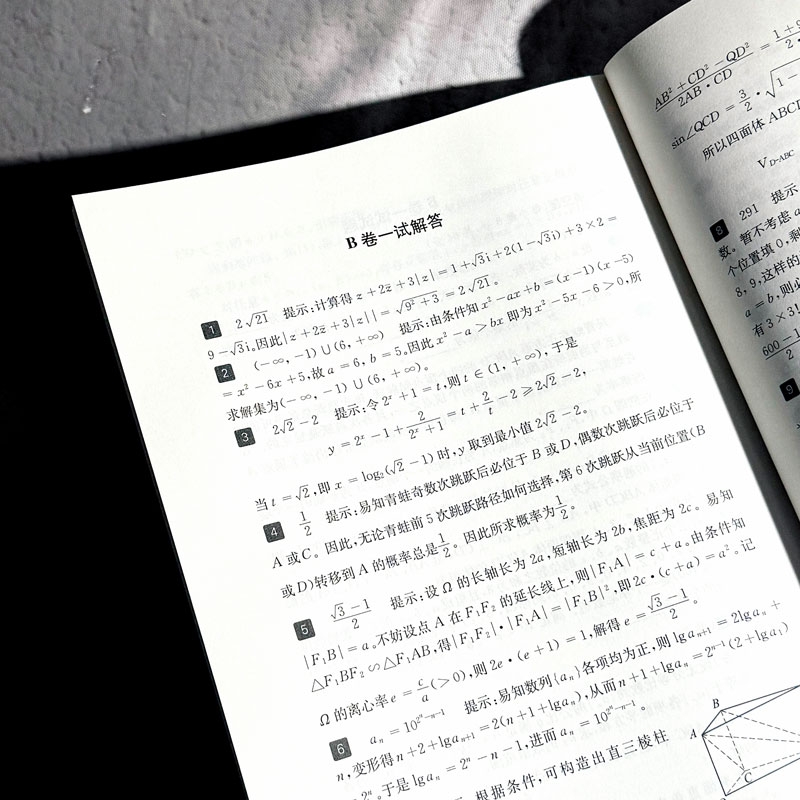 B卷一试解答
1 2√21 提示:计算得 z+2z̄+3|z|=1+√3i+2(1-√3i)+3×2=
9-√3i。因此|z+2z̄+3|z||=√(9²+3)=2√21。
2 (-∞,-1)∪(6,+∞) 提示:由条件知 x²-ax+b=(x-1)(x-5)
=x²-6x+5,故 a=6,b=5。因此 x²-a>bx 即为 x²-5x-6>0,所
求解集为(-∞,-1)∪(6,+∞)。
3 2√2-2 提示:令 2ˣ+1=t,则 t∈(1,+∞),于是
y=2ˣ-1+2/(2ˣ+1)=t+2/t-2≥2√2-2,
当 t=√2,即 x=log₂(√2-1)时,y 取到最小值 2√2-2。
4 1/2 提示:易知青蛙奇数次跳跃后必位于 B 或 D,偶数次跳跃后必位于
A 或 C。因此,无论青蛙前 5 次跳跃路径如何选择,第 6 次跳跃从当前位置(B
或 D)转移到 A 的概率总是 1/2。因此所求概率为 1/2。
5 (√3-1)/2 提示:设 Ω 的长轴长为 2a,短轴长为 2b,焦距为 2c。易知
|F₁B|=a。不妨设点 A 在 F₁F₂ 的延长线上,则|F₁A|=c+a。由条件知
△F₁BF₂∽△F₁AB,得|F₁F₂|·|F₁A|=|F₁B|²,即 2c·(c+a)=a²。记
Ω 的离心率 e=c/a(>0),则 2e·(e+1)=1,解得 e=(√3-1)/2。
6 aₙ=10^(2ⁿ-n-1) 提示:易知数列{aₙ}各项均为正,则 lgaₙ₊₁=2lgaₙ+
n,变形得 n+2+lgaₙ₊₁=2(n+1+lgaₙ),从而 n+1+lgaₙ=2ⁿ⁻¹(2+lga₁)
2ⁿ。于是 lgaₙ=2ⁿ-n-1,进而 aₙ=10^(2ⁿ-n-1)。
根据条件,可构造出直三棱柱
A
B
C
(AB²+CD²-QD²)/(2AB·CD)=
sin∠QCD=3/2·
所以四面体 ABCD
V_{D-ABC}
8 291 提示
数。暂不考虑
个位置填 0,剩
8,9,这样的
a=b,则必
有 3×31
600-1
2
9